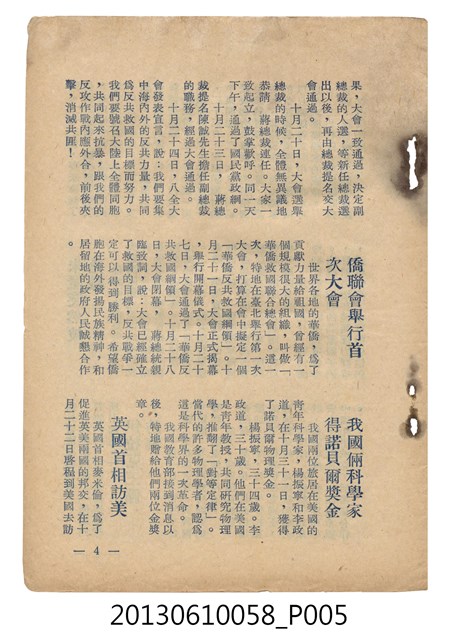 果，大會一致通過，決定副
總裁的人選，等新任總裁選
出以後，再由總裁提名交大
會通過。
十月二十日，大會選舉
總裁的時候，全體無異議地
恭請　蔣總裁連任。大家一
致起立，鼓掌歡呼。同一天
下午，通過了國民黨政綱。
十月二十三日，　蔣總
裁提名陳誠先生擔任副總裁
的職務，經過大會通過。
十月二十四日，八全大
會發表宣言，說：我們要集
中海內外的反共力量，共同
為反共救國的目標而努力。
我們要號召大陸上全體同胞
，共同起來抗暴，跟我們的
反攻作戰內應外合，前後夾
擊，消滅共匪！
僑聯會舉行首
次大會
世界各地的華僑，為了
貢獻力量給祖國，曾經有一
個規模很大的組織，叫做「
華僑救國聯合總會」。這一
次，特地在臺北舉行第一次
大會，打算在會中擬定一個
「華僑反共救國綱領」。十
月二十一日，大會正式揭幕
，舉行開幕儀式。十月二十
七日，大會通過了「華僑反
共救國綱領」。十月二十八
日，大會閉幕，　蔣總統親
臨致詞，說：大會已經確立
了救國的目標，反共戰爭一
定可以得到勝利。希望僑
胞在海外發揚民族精神，和
居留地的政府人民誠懇合作
。
我國倆科學家
得諾貝爾獎金
我國兩位旅居在美國的
青年科學家，楊振寧和李政
道，在十月三十一日，獲得
了諾貝爾物理獎金。
楊振寧，三十四歲。李
政道，三十歲。他們在美國
是青年教授，共同研究物理
學，推翻了「對等定律」。
當代的許多物理學者，認為
這是科學界的一次革命。
我國教育部接到消息以
後，特地贈給他們兩位金獎
章。
英國首相訪美
英國首相麥米倫，為了
促進英美兩國的邦交，在十
月二十二日啓程到美國去訪
— 4 —
20130610058_P005